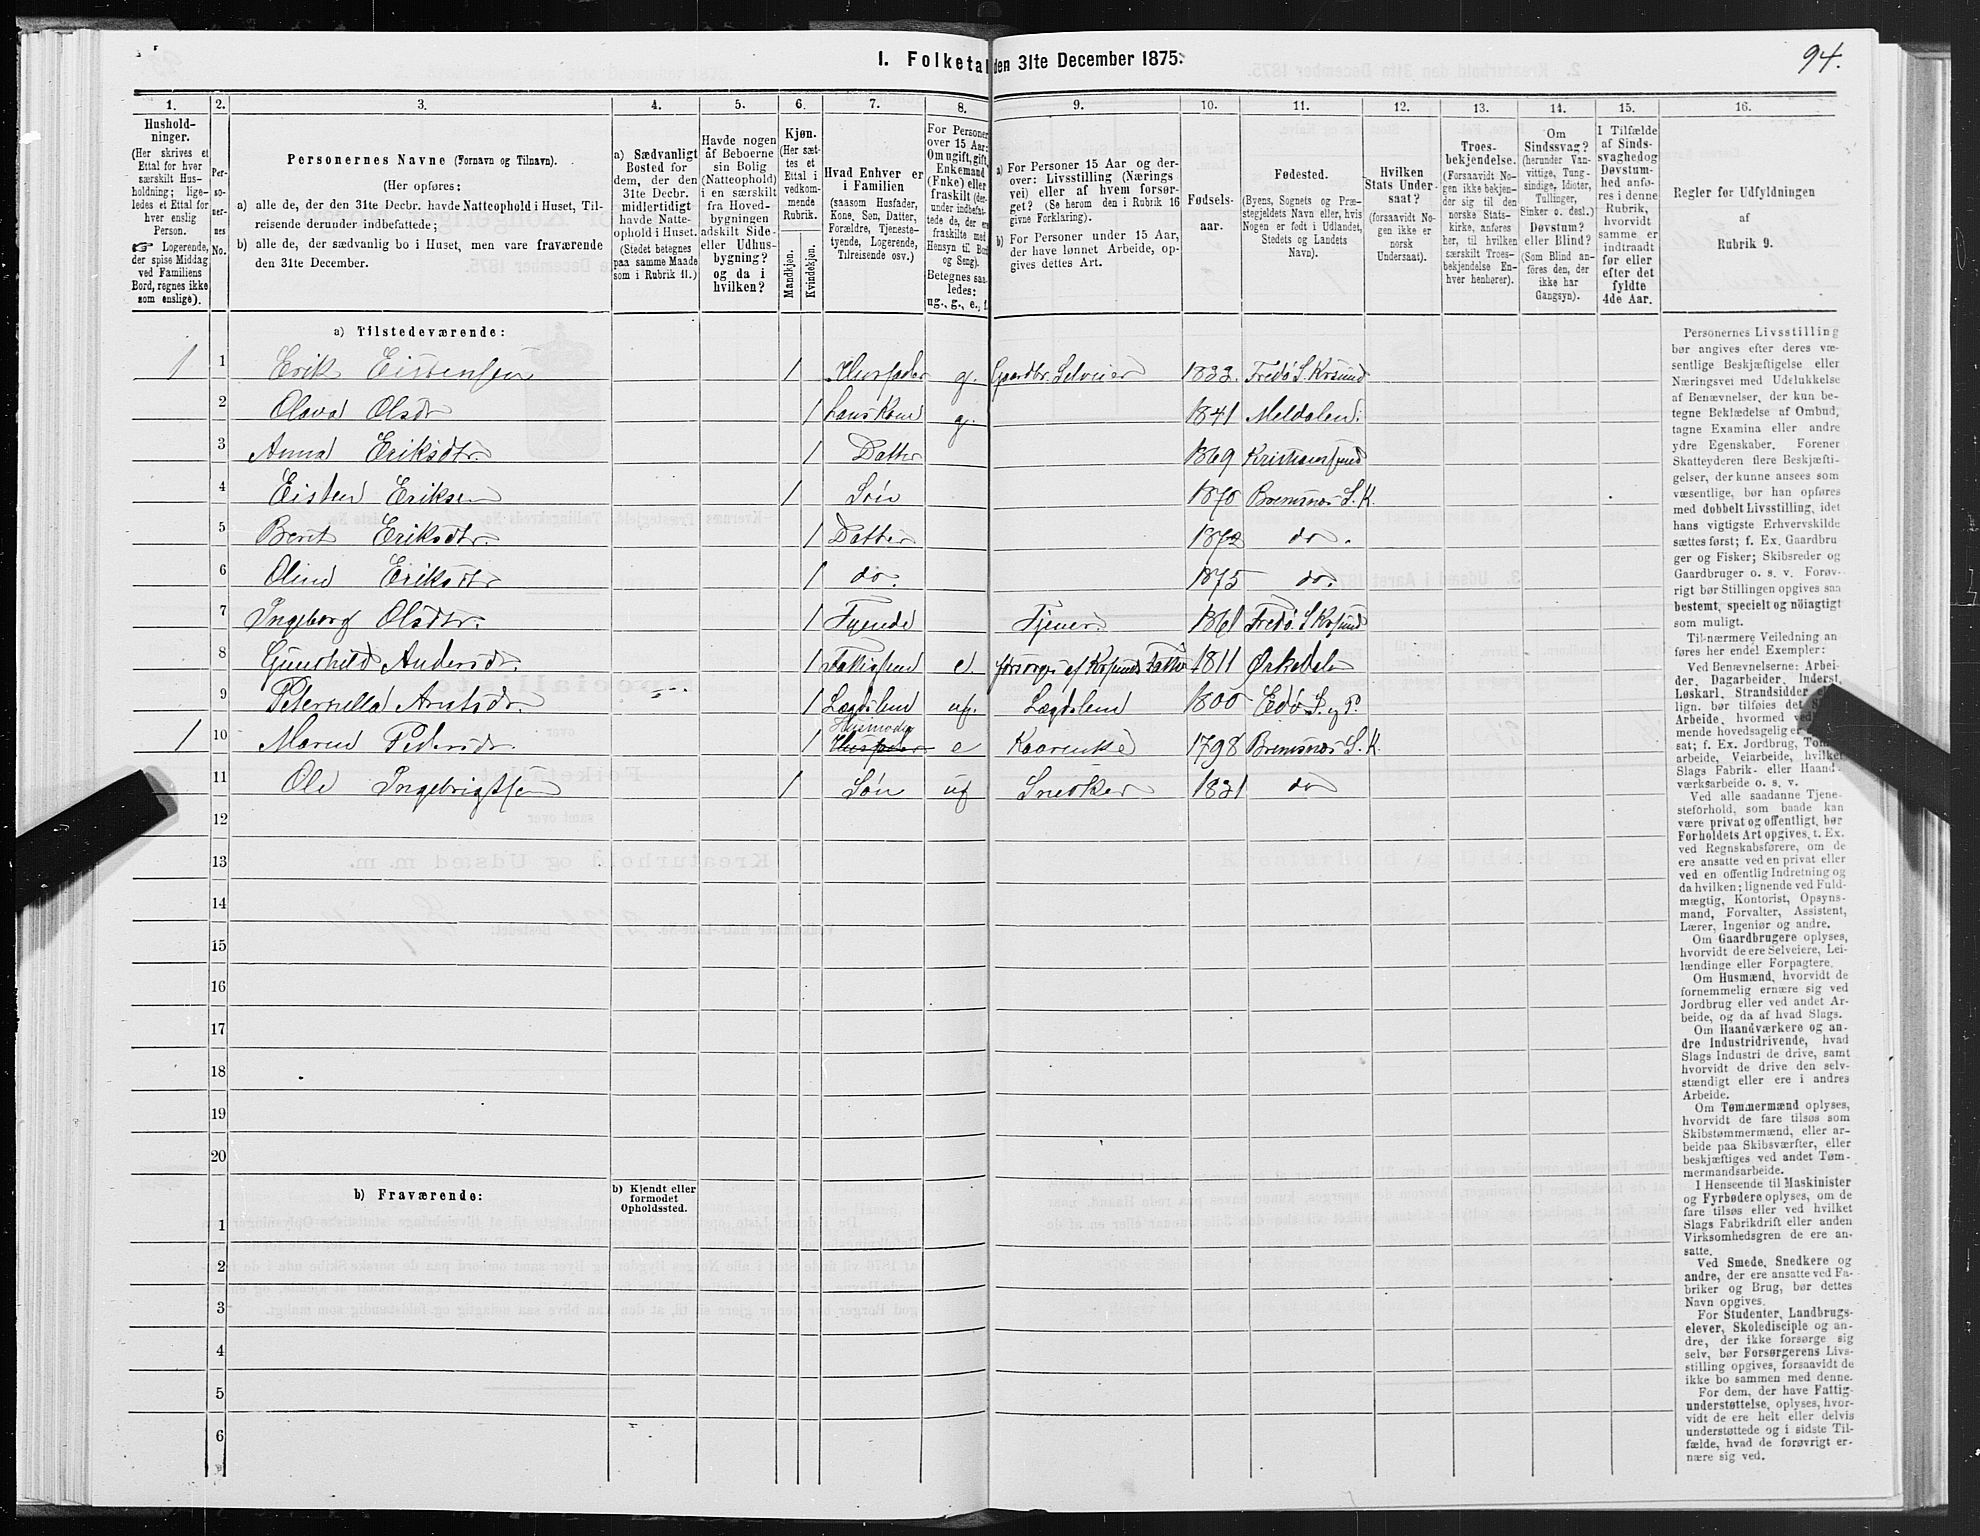 1. Folketal den 31te December 1875.
94.
1.
2.
3.
4.
5.
6.
7.
8.
9.
10.
11.
12.
13.
14.
15.
16.
Hushold-
ninger.
(Her skrives et
Ettal for hver
særskilt Hus-
holdning; lige-
ledes et Ettal for
hver enslig
Person.
☞ Logerende,
der spise Middag
ved Familiens
Bord, regnes ikke
som enslige).
Per-
so-
ner-
nes
No.
Personernes Navne (Fornavn og Tilnavn).
(Her opføres:
a) alle de, der den 31te Decbr. havde Natteophold i Huset, Til-
reisende derunder indbefattede;
b) alle de, der sædvanlig bo i Huset, men vare fraværende
den 31te December.
a) Sædvanligt
Bosted for
dem, der den
31te Decbr.
midlertidigt
havde Natte-
ophold i Huset.
(Stedet betegnes
paa samme Maade
som i Rubrik 11.)
Havde nogen
af Beboerne
sin Bolig
(Natteophold)
i en særskilt
fra Hoved-
bygningen
adskilt Side-
eller Udhus-
bygning?
og da i
hvilken?
Kjøn.
(Her sæt-
tes et
Ettal i
vedkom-
mende
Rubrik.
Mandkjøn.
Kvindekjøn.
Hvad Enhver er
i Familien
(saasom Husfader,
Kone, Søn, Datter,
Forældre, Tjeneste-
tyende, Logerende,
Tilreisende osv.)
For Personer
over 15 Aar:
Om ugift, gift,
Enkemand
(Enke) eller
fraskilt (der-
under indbefat-
tede de, der ere
fraskilte med
Hensyn til Bord
og Seng).
Betegnes saa-
ledes:
ug., g., e., f.
a) For Personer 15 Aar og der-
over: Livsstilling (Nærings
vei) eller af hvem forsør-
get? (Se herom den i Rubrik 16
givne Forklaring).
b) For Personer under 15 Aar,
der have lønnet Arbeide, op-
gives dettes Art.
Fødsels-
aar.
Fødested.
(Byens, Sognets og Præ-
stegjeldets Navn eller, hvis
Nogen er født i Udlandet,
Stedets og Landets
Navn).
Hvilken
Stats Under-
saat?
(forsaavidt No-
gen ikke er
norsk
Undersaat).
Troes-
bekjendelse.
(Forsaavidt No-
gen ikke bekjen-
der sig til den
norske Stats-
kirke, anføres
her, til hvilken
særskilt Troes-
bekjendelse En-
hver henhører).
Om
Sindssvag?
(herunder Van-
vittige, Tung-
sindige, Idioter,
Tullinger,
Sinker o. desl.)
Døvstum?
eller Blind?
(Som Blind an-
føres den, der
ikke har
Gangsyn).
I Tilfælde
af Sinds-
svaghed og
Døvstum-
hed anfø-
res i denne
Rubrik,
hvorvidt
samme er
indtraadt
før eller
efter det
fyldte
4de Aar.
Regler før Udfyldningen
af
Rubrik 9.
a) Tilstedeværende:
1 1 Erik Eistensen 1 Husfader g. Gaardbr. Selveier 1832. Fredö S. Krsund
2 Olava Olsdtr 1 hans Kone g. 1841 Meldalen
3 Anna Eriksdtr. 1 Datter 1869 Kristiansund
4 Eisten Eriksen 1 Sön 1870 Bremsnæs S. K.
5 Berit Eriksdtr. 1 Datter 1872 do.
6 Olina Eriksdtr 1 do. 1875 do.
7 Ingeborg Olsdtr. 1 Tyende Tjener. 1861 Fredö S Krsund
8 Gunhild Andersdr. 1 e. 1811 Ørkedalen
9 Pernella Arntsdr. 1 Lægdslem ug. Lægdslem 1800 Edö S. og P.
1 10 Maren Pedersdr 1 Husfader e Kaarenke 1798 Bremsnæs S. K.
11 Ole Ingebrigtsen 1 Sön ug Snedker 1821 do
12
13
14
15
16
17
18
19
20
b) Fraværende:
b) Kjendt eller
formodet
Opholdssted.
1
2
3
4
5
6
Personernes Livsstilling
bør angives efter deres væ-
sentlige Beskjæftigelse eller
Næringsvei med Udelukkelse
af Benævnelser, der kun be-
tegne Beklædelse af Ombud,
tagne Examina eller andre
ydre Egenskaber. Forener
Skatteyderen flere Beskjæfti-
gelser, der kunne ansees som
væsentlige, bør han opføres
med dobbelt Livsstilling, idet
hans vigtigste Erhvervskilde
sættes først; f. Ex. Gaardbru
ger og Fisker; Skibsreder og
Gaardbruger o. s. v. Forøv-
rigt bør Stillingen opgives saa
bestemt, specielt og nöiagtigt
som muligt.
Til nærmere Veiledning an
føres her endel Exempler:
Ved Benævnelserne: Arbei-
der, Dagarbeider, Inderst,
Løskarl, Strandsidder
lign. bør tilføies det
Arbeide, hvormed
mende hovedsagelig er
sat; f. Ex. Jordbrug,
arbeide, Veiarbeide, hvilket
Slags Fabrik- eller Haand-
værksarbeide o. s. v.
Ved alle saadanne Tjene-
steforhold, som baade kan
være privat og offentligt, bør
Forholdets Art opgives, t. Ex.
ved Regnskabsførere, om de
ere ansatte ved en privat eller
ved en offentlig Indretning og
da hvilken; lignende ved Fuld-
mægtig, Kontorist, Opsyns-
mand, Forvalter, Assistent,
Lærer, Ingeniør og andre.
Om Gaardbrugere oplyses,
hvorvidt de ere Selveiere, Lei-
lændinge eller Forpagtere.
Om Husmænd, hvorvidt de
fornemmelig ernære sig ved
Jordbrug eller ved andet Ar-
beide, og da af hvad Slags.
Om Haandværkere og an-
dre Industridrivende, hvad
Slags Industri de drive, samt
hvorvidt de drive den selv-
stændigt eller ere i andres
Arbeide.
Om Tømmermænd oplyses,
hvorvidt de fare tilsøs som
Skibstømmermænd, eller ar-
beide paa Skibsværfter, eller
beskjæftiges ved andet Tøm-
mermandsarbeide.
I Henseende til Maskinister
og Fyrbødere oplyses, om de
fare tilsøs eller ved hvilket
Slags Fabrikdrift eller anden
Virksomhedsgren de ere an-
satte.
Ved Smede, Snedkere og
andre, der ere ansatte ved Fa-
briker og Brug, bør dettes
Navn opgives.
For Studenter, Landbrugs-
elever, Skoledisciple og an-
dre, der ikke forsørge sig
selv, bør Forsørgerens Livs-
stilling opgives, forsaavidt de
ikke bo sammen med denne.
For dem, der have Fattig-
understøttelse, oplyses, hvor-
vidt de ere helt eller delvis
understøttede og i sidste Til-
fælde, hvad de forøvrigt er-
nære sig ved.